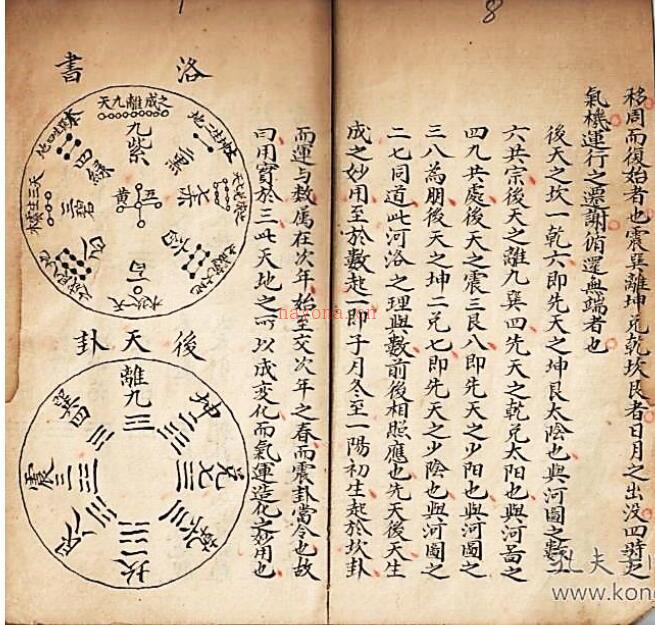 8
移周而復始者也震巽離坤兌乾坎艮者日月之出没四時之
氣機運行之遷謝俯還無端者也
後天之坎一乾六即先天之坤艮太陰也與河圖之數一
六共宗後天之離九巽四先天之乾兌太陽也與河啚之
四九共處後天之震三艮八即先天之少陽也與河圖之
三八為朋後天之坤二兌七即先天之少陰也與河圖之
二七同道此河洛之理與數前後相照應也先天後天生
成之妙用至於數起一即子月冬至一陽初生起於坎卦
而運与数属在次年始至交次年之春而震卦當令也故
曰用寅於三此天地之所以成变化而氣運造化之妙用也
1
洛書
之成離九天
九紫
二黑
四緑
五
黄
三碧
後天卦
離九
坤二
兌七
乾六
坎一
艮
震三
巽四
nayona.cn
孔夫
www.kong